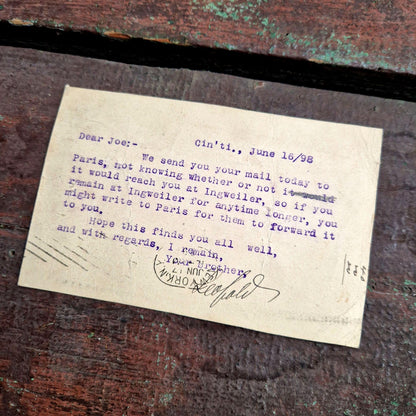 Cin'ti., June 16/98
Dear Joe:-
We send you your mail today to
Paris, not knowing whether or not it would
it would reach you at Ingweiler, so if you
remain at Ingweiler for anytime longer, you
might write to Paris for them to forward it
to you.
Hope this finds you all well,
and with regards, I remain,
Your Brother,
Leopold
JUN 17